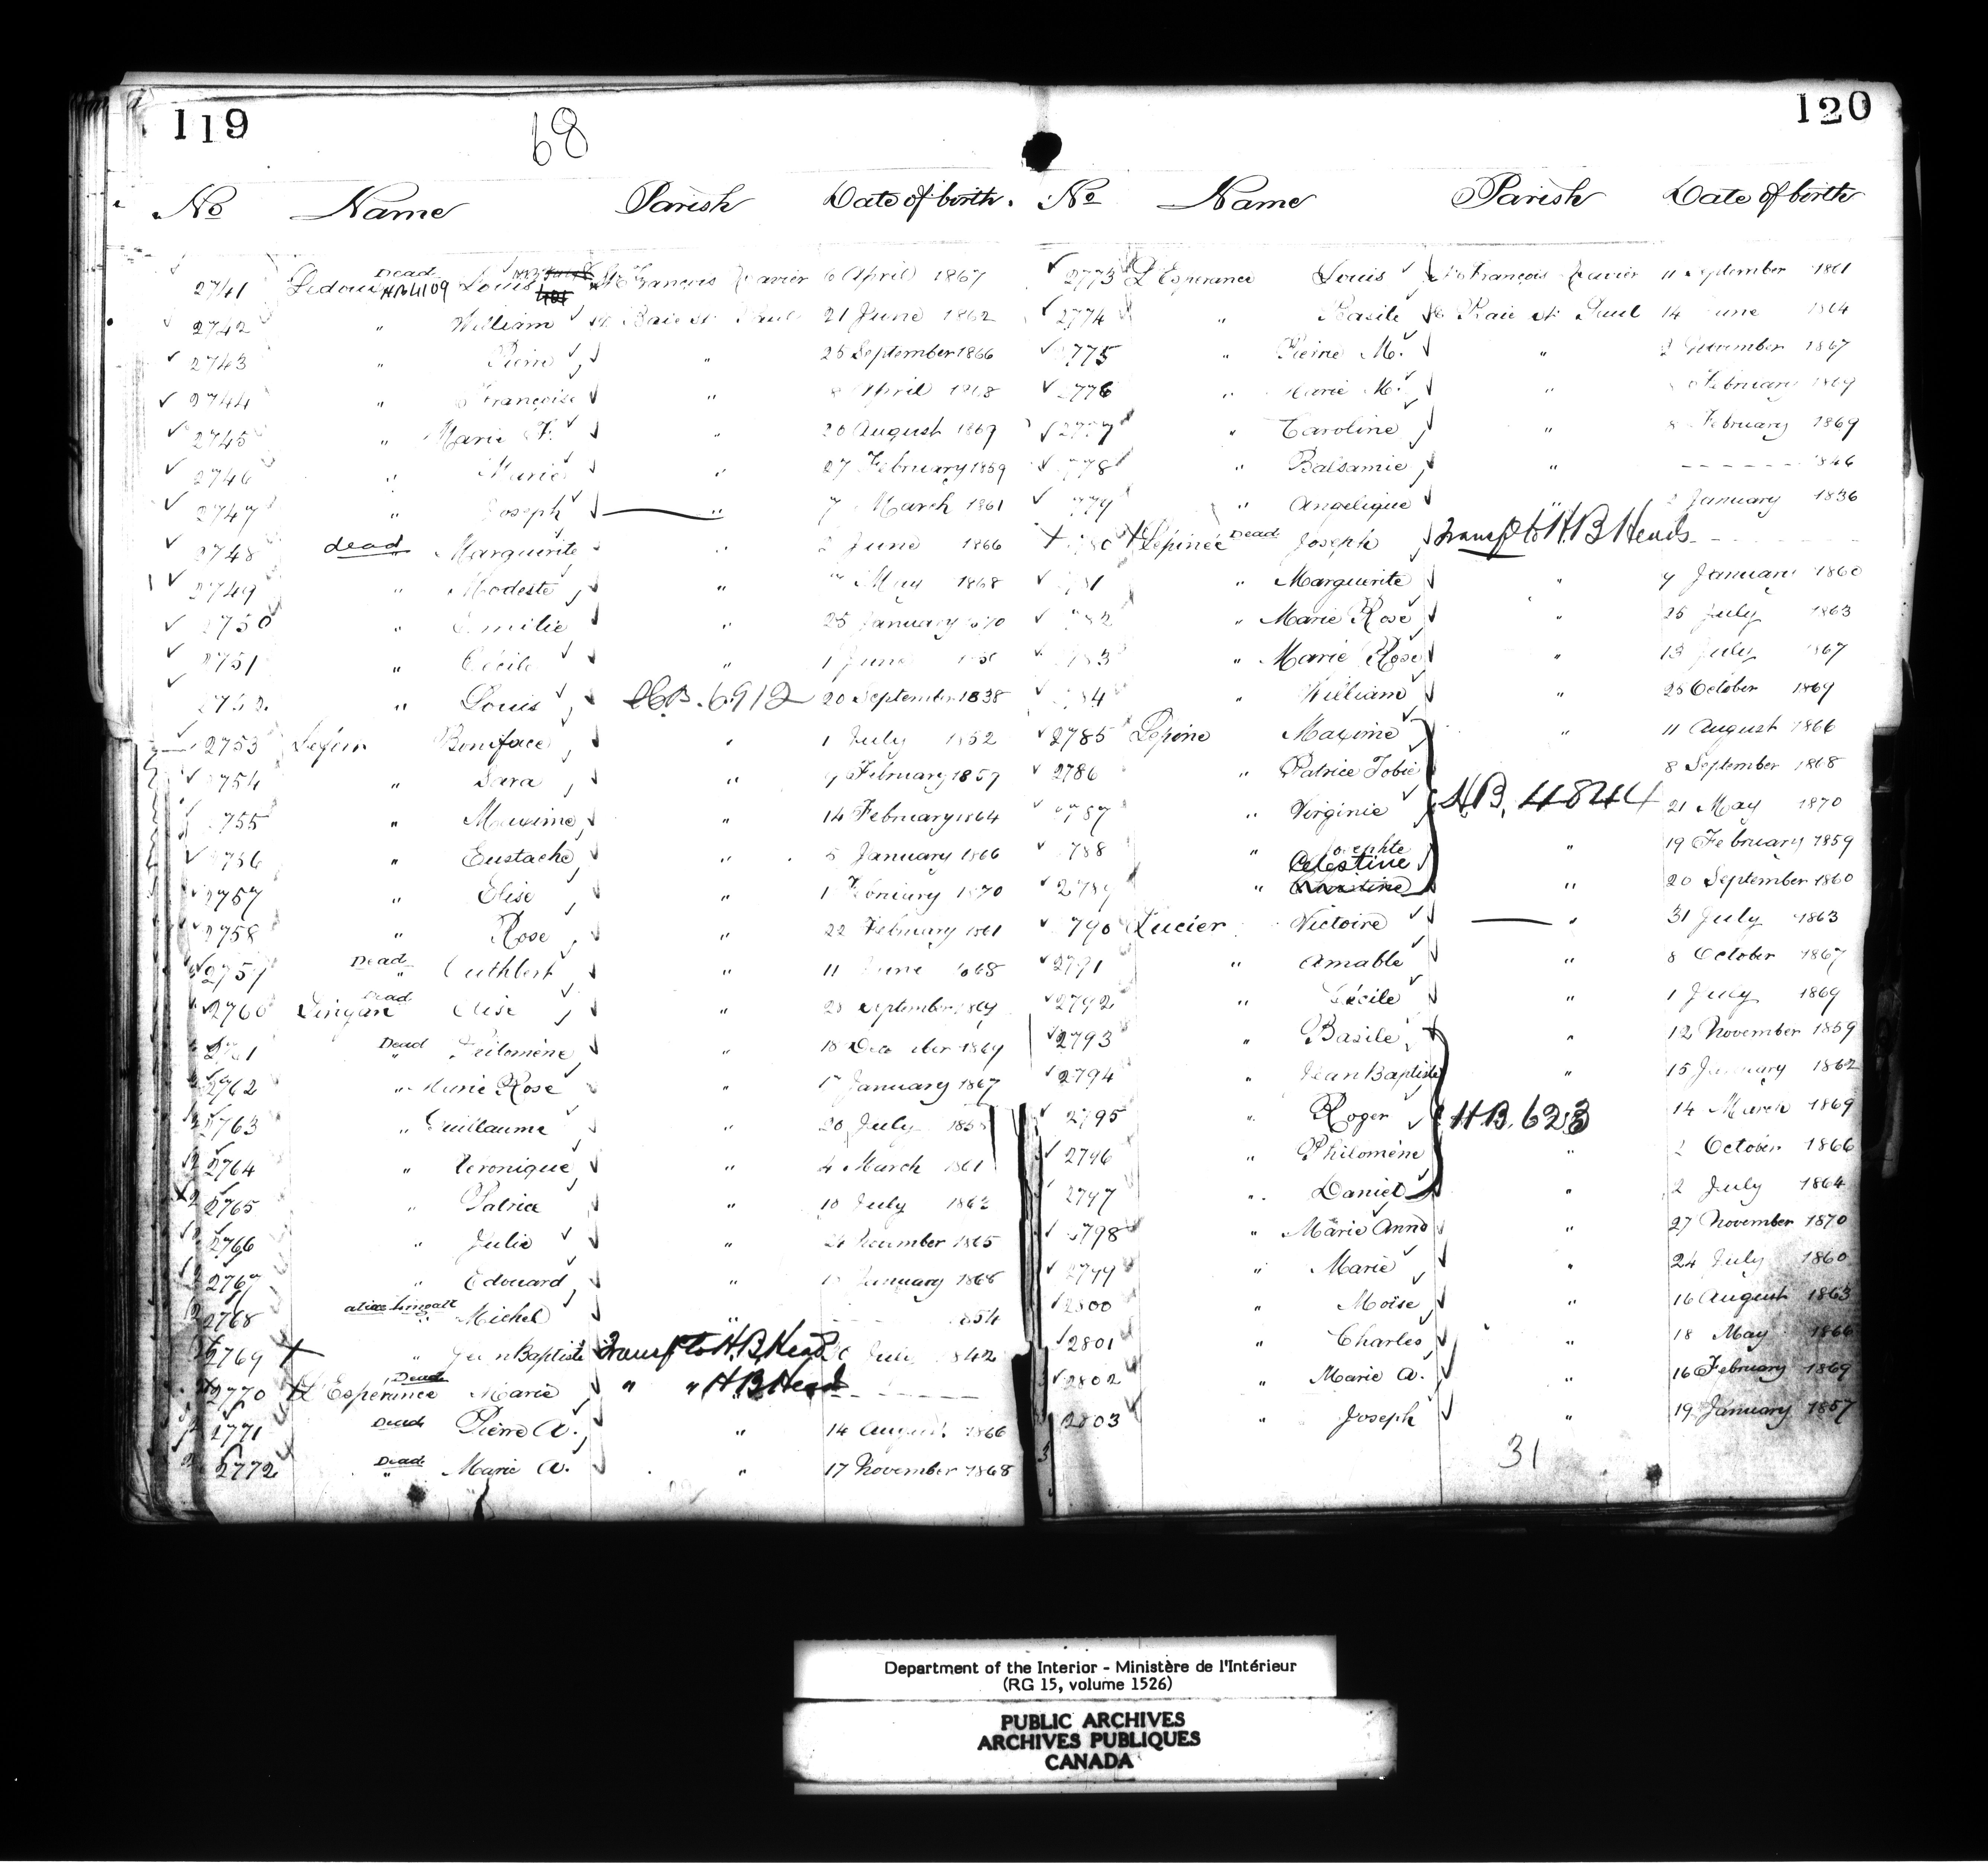 119
68
No Name Parish Date of birth.
2741 Ledoux Dead HB 4109 Louis St François Xavier 6 April 1867
2742 " William Baie St Paul 21 June 1862
2743 " Pierre " 25 September 1866
2744 " Françoise " 8 April 1868
2745 " Marie F. " 20 August 1869
2746 " Marie " 27 February 1859
2747 " Joseph " 7 March 1861
2748 dead " Marguerite " June 1866
2749 " Modeste " May 1868
2750 " Emilie " 25 January 1870
2751 " Cécile " 1 June
2752 " Louis H.B. 6912 20 September 1838
2753 Boniface " 1 July 1852
2754 " Sara " 9 February 1859
2755 " Maxime " 14 February 1864
2756 " Eustache " 5 January 1866
2757 " Elise " 1 1870
2758 " Rose " 22 February 1861
2759 Dead " Cuthbert " 11 June 1868
2760 Dead Lingan Elise " September 1869
2761 Dead " Philomène " 18 1869
2762 " Marie Rose " January 1867
2763 " Guillaume " 20 July
2764 " Véronique " 4 March 1861
2765 " Patrice " 10 July 1863
2766 " Julie " November 1865
2767 " Edouard " January 1868
2768 alias " Michel " 1854
2769 " Jean Baptiste Transf to H.B. Head July 1842
2770 L'Esperance Dead Marie " " H B Head
2771 Dead Pierre A. " 14 August 1866
2772 Dead " Marie A. " 17 November 1868
120
No Name Parish Date of birth
2773 L'Esperance Louis St François Xavier 11 September 1861
2774 " Basile Baie St Paul 14 June 1864
2775 " Pierre M. " 2 November 1867
2776 " Marie M. " February 1869
2777 " Caroline " 8 February 1869
2778 " Balsamie " 1846
2779 " Angelique " January 1836
2780 Lépinée Dead Joseph Transf to H.B Heads
2781 " Marguerite " 9 January 1860
2782 " Marie Rose " 25 July 1863
2783 " Marie Rose " 13 July 1867
2784 " William " 25 October 1869
2785 Lépine Maxime " 11 August 1866
2786 " Patrice Tobie 8 September 1868
2787 " Virginie H.B. 4844 21 May 1870
2788 " Josephte " 19 February 1859
2789 " Celestine " 20 September 1860
2790 Lucier Victoire " 31 July 1863
2791 " Amable " 8 October 1867
2792 " Cécile " 1 July 1869
2793 " Basile " 12 November 1859
2794 " Jean Baptiste " 15 January 1862
2795 " Roger H.B. 623 14 March 1869
2796 " Philomène " 2 October 1866
2797 " Daniel " 2 July 1864
2798 " Marie Anne " 27 November 1870
2799 " Marie " 24 July 1860
2800 " Moïse " 16 August 1863
2801 " Charles " 18 May 1866
2802 " Marie A. " 16 February 1869
2803 " Joseph " 19 January 1857
31
Department of the Interior - Ministère de l'Intérieur
(RG 15, volume 1526)
PUBLIC ARCHIVES
ARCHIVES PUBLIQUES
CANADA